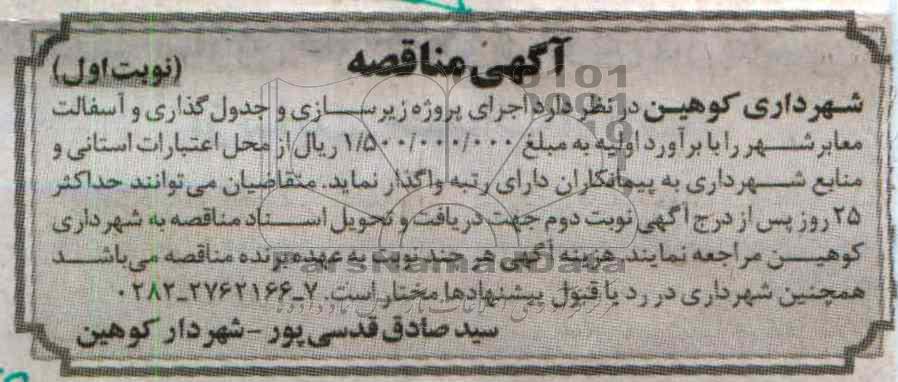 آگهی مناقصه
(نوبت اول)
شهرداری کوهین در نظر دارد اجرای پروژه زیرسازی و جدول گذاری و آسفالت
معابر شهر را با برآورد اولیه به مبلغ ۱/۵۰۰/۰۰۰/۰۰۰ ریال از محل اعتبارات استانی و
منابع شهرداری به پیمانکاران دارای رتبه واگذار نماید. متقاضیان می توانند حداکثر
۲۵ روز پس از درج آگهی نوبت دوم جهت دریافت و تحویل اسناد مناقصه به شهرداری
کوهین مراجعه نمایند. هزینه آگهی هر چند نوبت به عهده برنده مناقصه می باشد
همچنین شهرداری در رد یا قبول پیشنهادها مختار است. ۷-۲۷۶۲۱۶۶-۰۲۸۲
سید صادق قدسی پور - شهردار کوهین
ParsNamadData